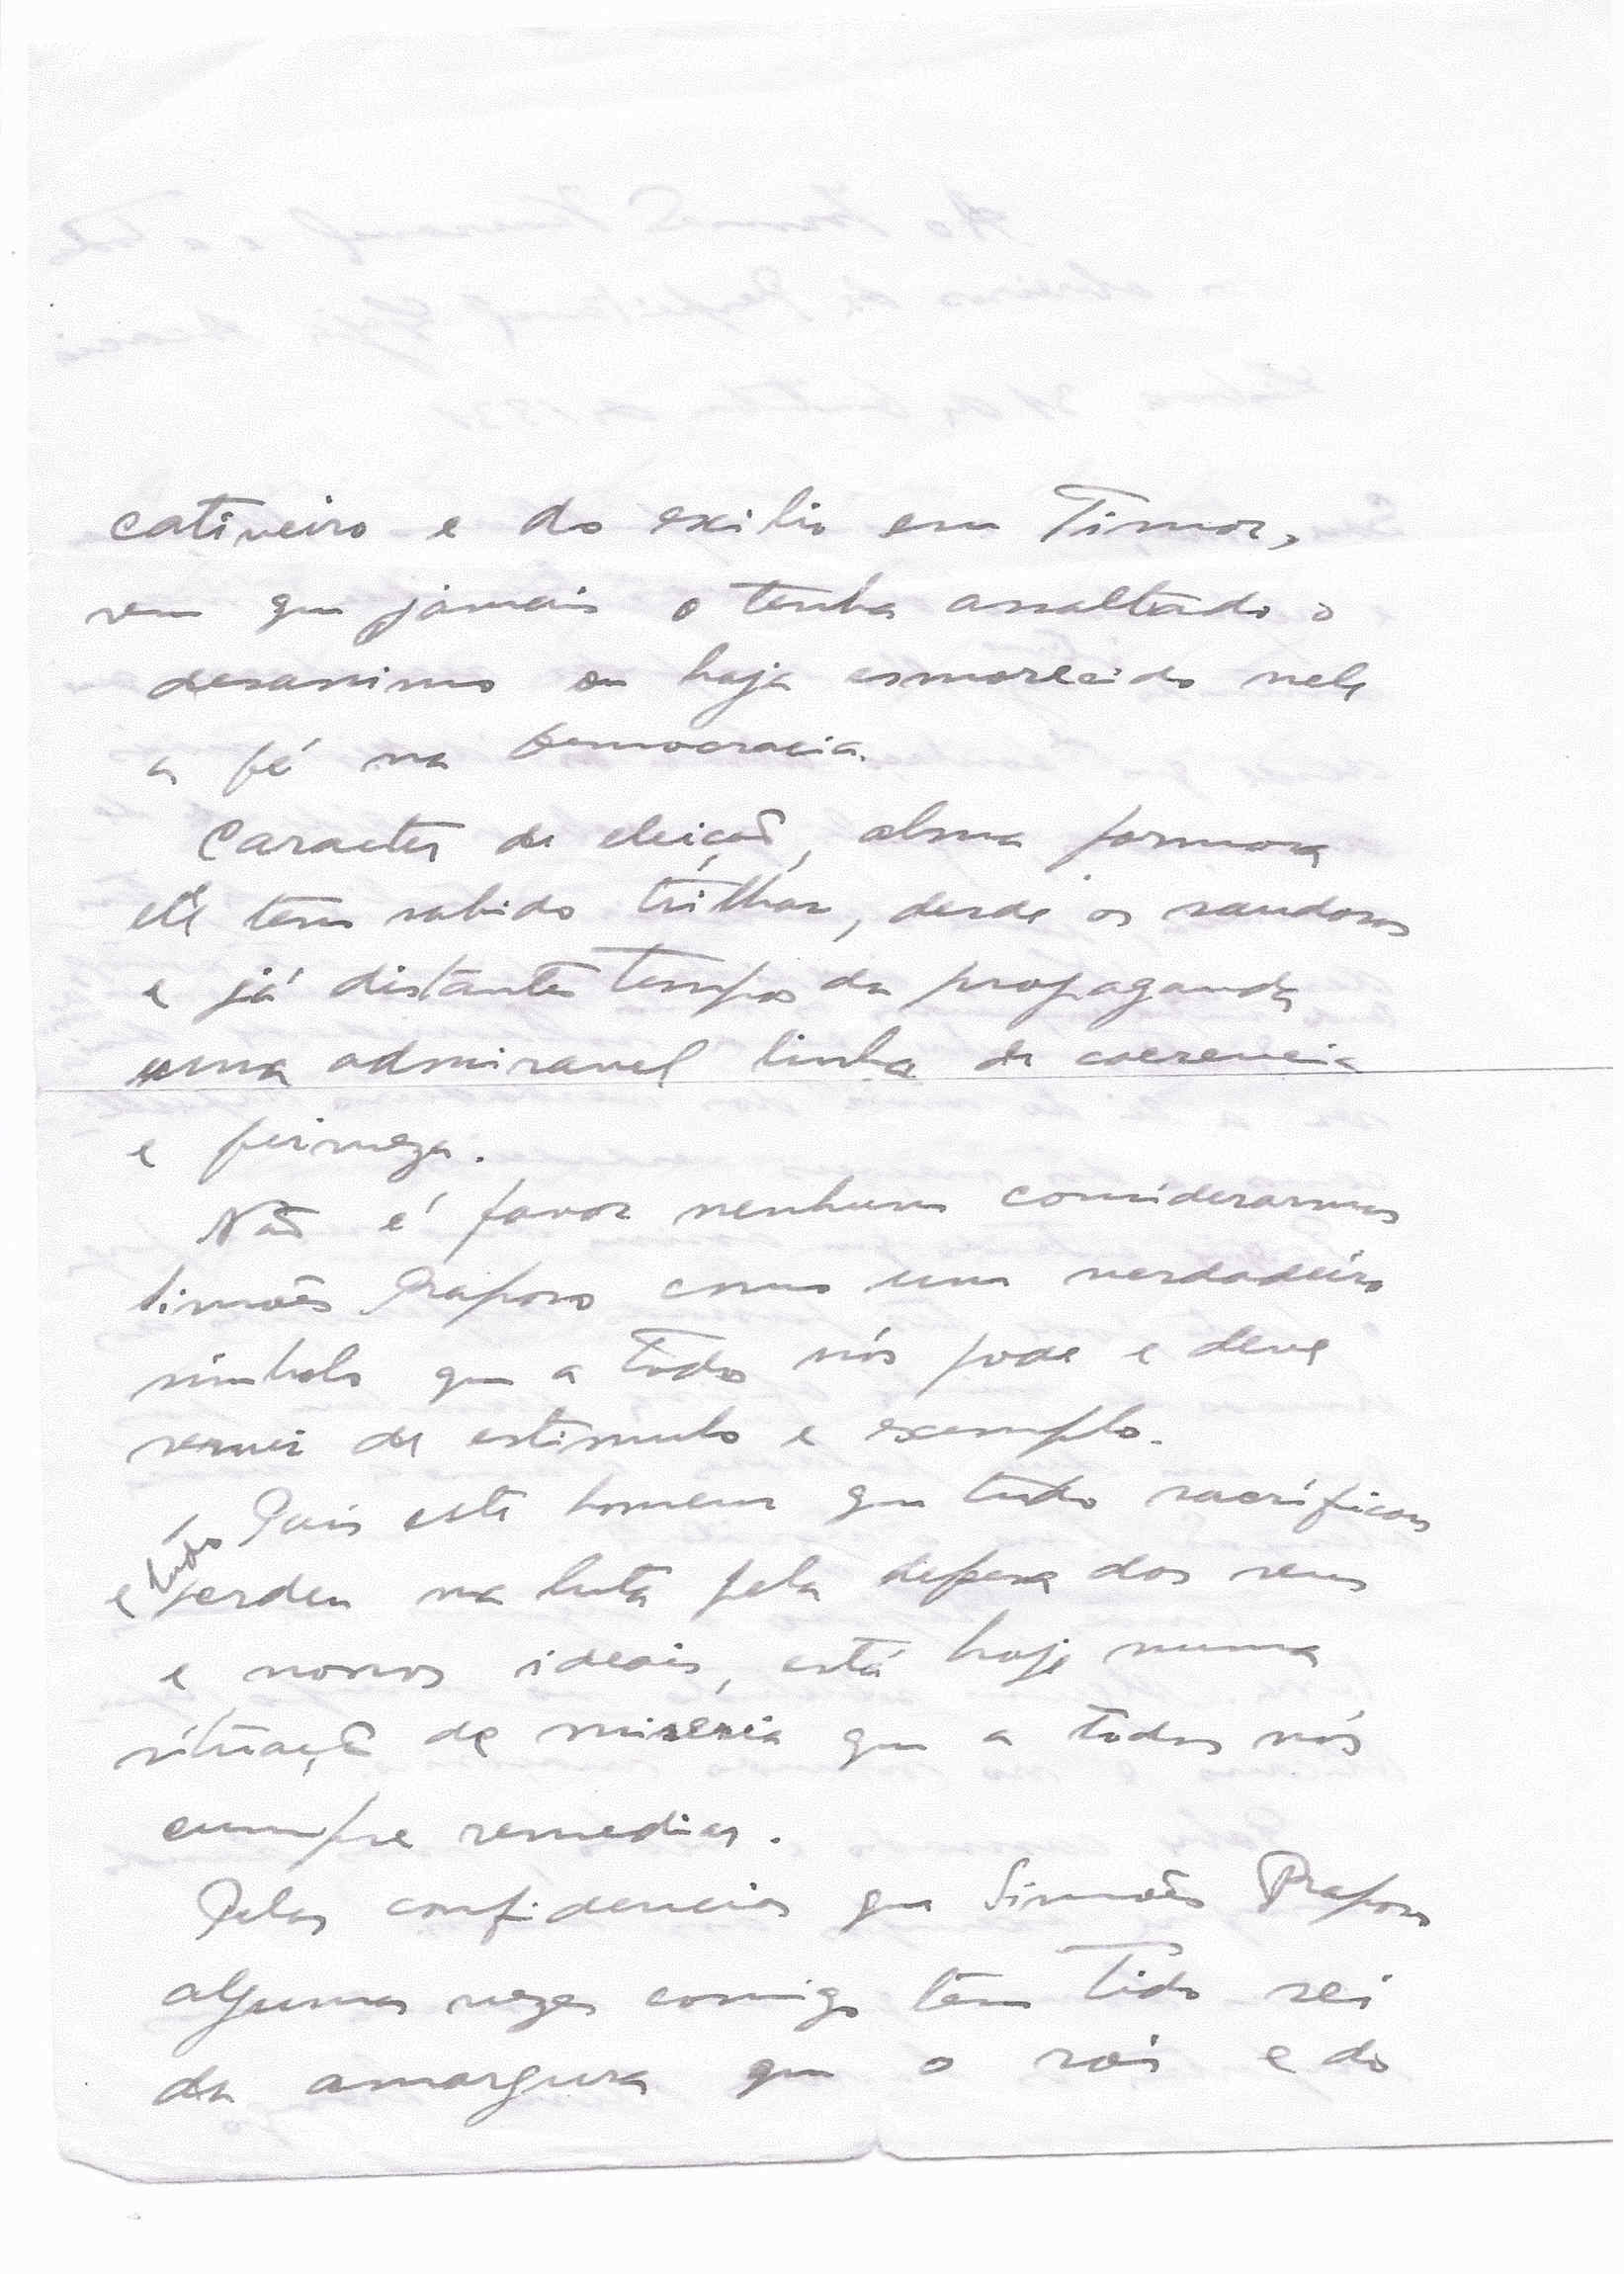 cativeiro e do exilio em Timor,
sem que jamais o tenha assaltado o
desanimo ou haja esmorecido nele
a fé na Democracia.
Caracter de eleição, alma formosa
ele tem sabido trilhar, desde os saudosos
e já distantes tempos da propaganda
uma admiravel linha de coerencia
e firmeza.
Não é favor nenhum considerarmos
Simões Raposo como um verdadeiro
simbolo que a todos nós pode e deve
servir de estimulo e exemplo.
Pois este homem que tudo sacrificou
e tudo perdeu na luta pela defesa dos seus
e nossos ideais, está hoje numa
situação de miseria que a todos nós
cumpre remediar.
Pelas confidencias que Simões Raposo
algumas vezes comigo tem tido sei
da amargura que o rói e do